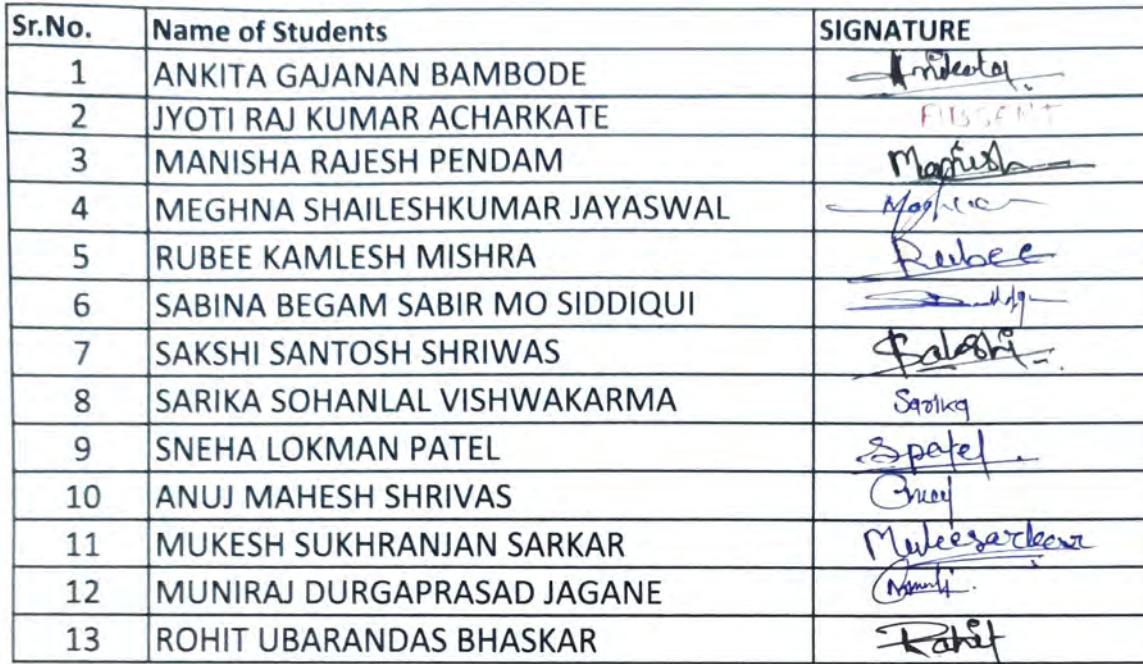 Sr.No. Name of Students SIGNATURE
1 ANKITA GAJANAN BAMBODE Ankita
2 JYOTI RAJ KUMAR ACHARKATE ABSENT
3 MANISHA RAJESH PENDAM Manisha
4 MEGHNA SHAILESHKUMAR JAYASWAL
5 RUBEE KAMLESH MISHRA Rubee
6 SABINA BEGAM SABIR MO SIDDIQUI
7 SAKSHI SANTOSH SHRIWAS Sakshi
8 SARIKA SOHANLAL VISHWAKARMA Sarika
9 SNEHA LOKMAN PATEL Spatel
10 ANUJ MAHESH SHRIVAS Anuj
11 MUKESH SUKHRANJAN SARKAR
12 MUNIRAJ DURGAPRASAD JAGANE
13 ROHIT UBARANDAS BHASKAR Rohit